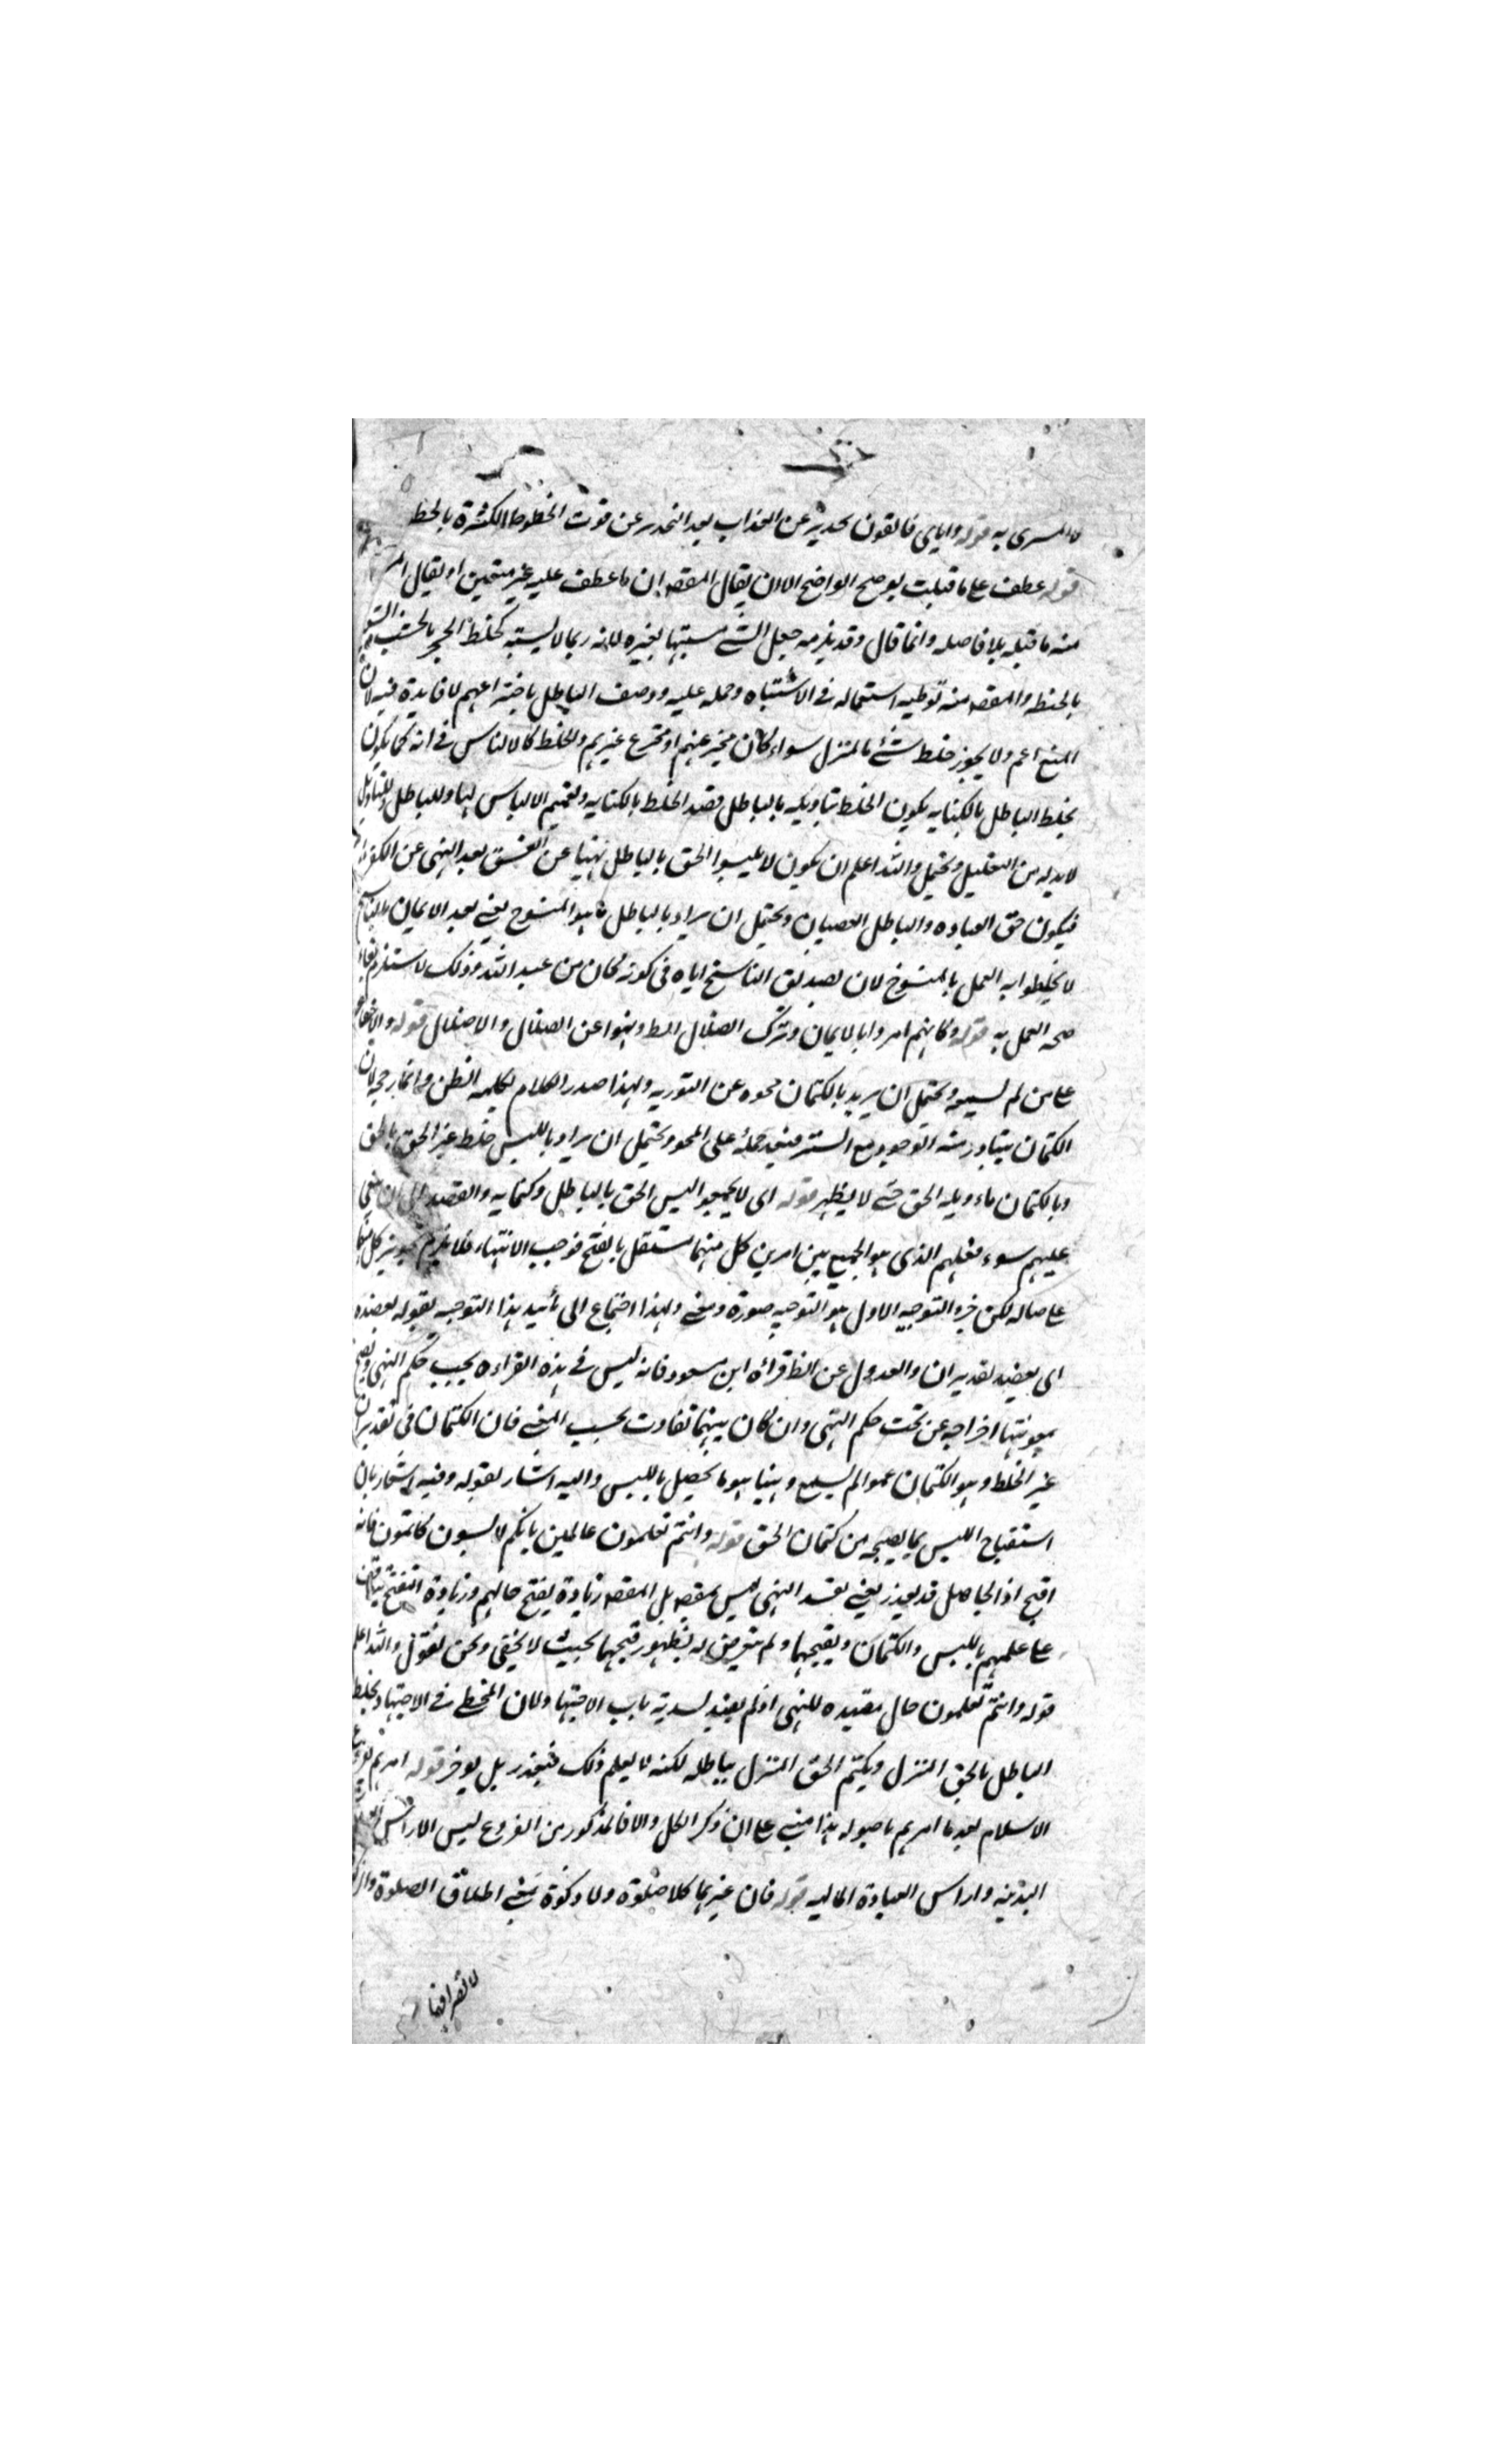 لا المسرى به قوله واياى فاتقون تحذير عن العذاب بعد التحذير عن فوت الحظوظ الكثرة بالحظ
قوله عطف على ما قبلت يوضح الواضح الا ان يقال المقصه ان ما عطف عليه غير متعين او يقال
منه ما قبله بلا فاصله وانما قال وقد يلزمه جعل الشئ مشتبها بغيره لانه ربما لا يشتبه كخلط الحجر بالخشب
بالحنط والمقصه منه توطيه استعماله فى الاشتباه وحمله عليه ووصف الباطل باختراعهم لا فايدة فيه لان
المنع اعم ولا يجوز خلط شئ بالمنزل سواء كان مخترعهم او مخترع غيرهم والخلط كالالباس فى انه كما يكون
بخلط الباطل بالكتابه يكون الخلط بتاويله بالباطل فقيد الخلط بالكتابه وتعميم الالباس لها وللباطل وللتاويل
لا بد له من التعليل ويحتمل والله اعلم ان يكون لا تلبسوا الحق بالباطل نهيا عن الفسق بعد النهى عن الكفر
فيكون حق العباده والباطل العصيان ويحتمل ان يراد بالباطل ما هو المنسوخ يعنى بعد الايمان بالناسخ
لا تخلطوا به العمل بالمنسوخ لان تصديق الناسخ اياه فى كونه كان من عند الله وذلك لا يستلزم بقاء
صحه العمل به قوله وكانهم امروا بالايمان وترك الضلال الط ونهوا عن الضلال والاضلال قوله والاخفاء
على من لم يسمعه ويحتمل ان يريد بالكتمان محوه عن التوريه ولهذا صدر الكلام بكلمه الظن وانما رجحه لان
الكتمان يتبادر منه الوجود مع الستر فيبعد حمله على المحو ويحتمل ان يراد باللبس خلط غير الحق بالحق
وبالكتمان تاويله الحق حتى لا يظهر قوله اى لا تجمعوا لبس الحق بالباطل وكتمانه والقصد الى ان ينعى
عليهم سوء فعلهم الذى هو الجمع بين امرين كل منهما مستقل بالقبح فوجب الانتهاء فلا يلزم تجويز كل منهما
على حاله لكن خير التوجيه الاول هو التوجيه صورة ومعنى ولهذا احتاج الى تأييد هذا التوجيه بقوله يعضده
اى يعضد تقدير ان والعدول عن الظ قراءه ابن مسعود فانه ليس فى هذه القراءه يجب حكم النهى
بمعونتها اخراجه عن تحت حكم النهى وان كان بينهما تفاوت بحسب المعنى فان الكتمان فى تقدير ان
غير الخلط وهو الكتمان عمن لم يسمع وهنا هو ما يحصل باللبس واليه اشار بقوله وفيه اشعار بان
استقباح اللبس بما يصحبه من كتمان الحق قوله وانتم تعلمون عالمين بانكم لابسون كاتمون فانه
اقبح اذ الجاهل قد يعذر يعنى تقييد النهى ليس بمقصه بل المقصه زيادة يفتح حالهم وزيادة
على علمهم باللبس والكتمان وبقبحهما ولم يتعرض له لظهور قبحهما بحيث لا يخفى ونحن نقول والله اعلم
قوله وانتم تعلمون حال مقيده للنهى اذ لم يقيد لسد به باب الاجتهاد لان المخطى فى الاجتهاد يخلط
الباطل بالحق المنزل ويكتم الحق المنزل بباطله لكنه لا يعلم ذلك فيعذر بل يوجر قوله امرهم بفروع
الاسلام بعد ما امرهم باصوله هذا مبنى على ان ذكر الكل والا فالمذكور من الفروع ليس الا راس
البدنيه وراس العبادة الماليه قوله فان غيرهما كلا صلوة ولا زكوة يعنى اطلاق الصلوة